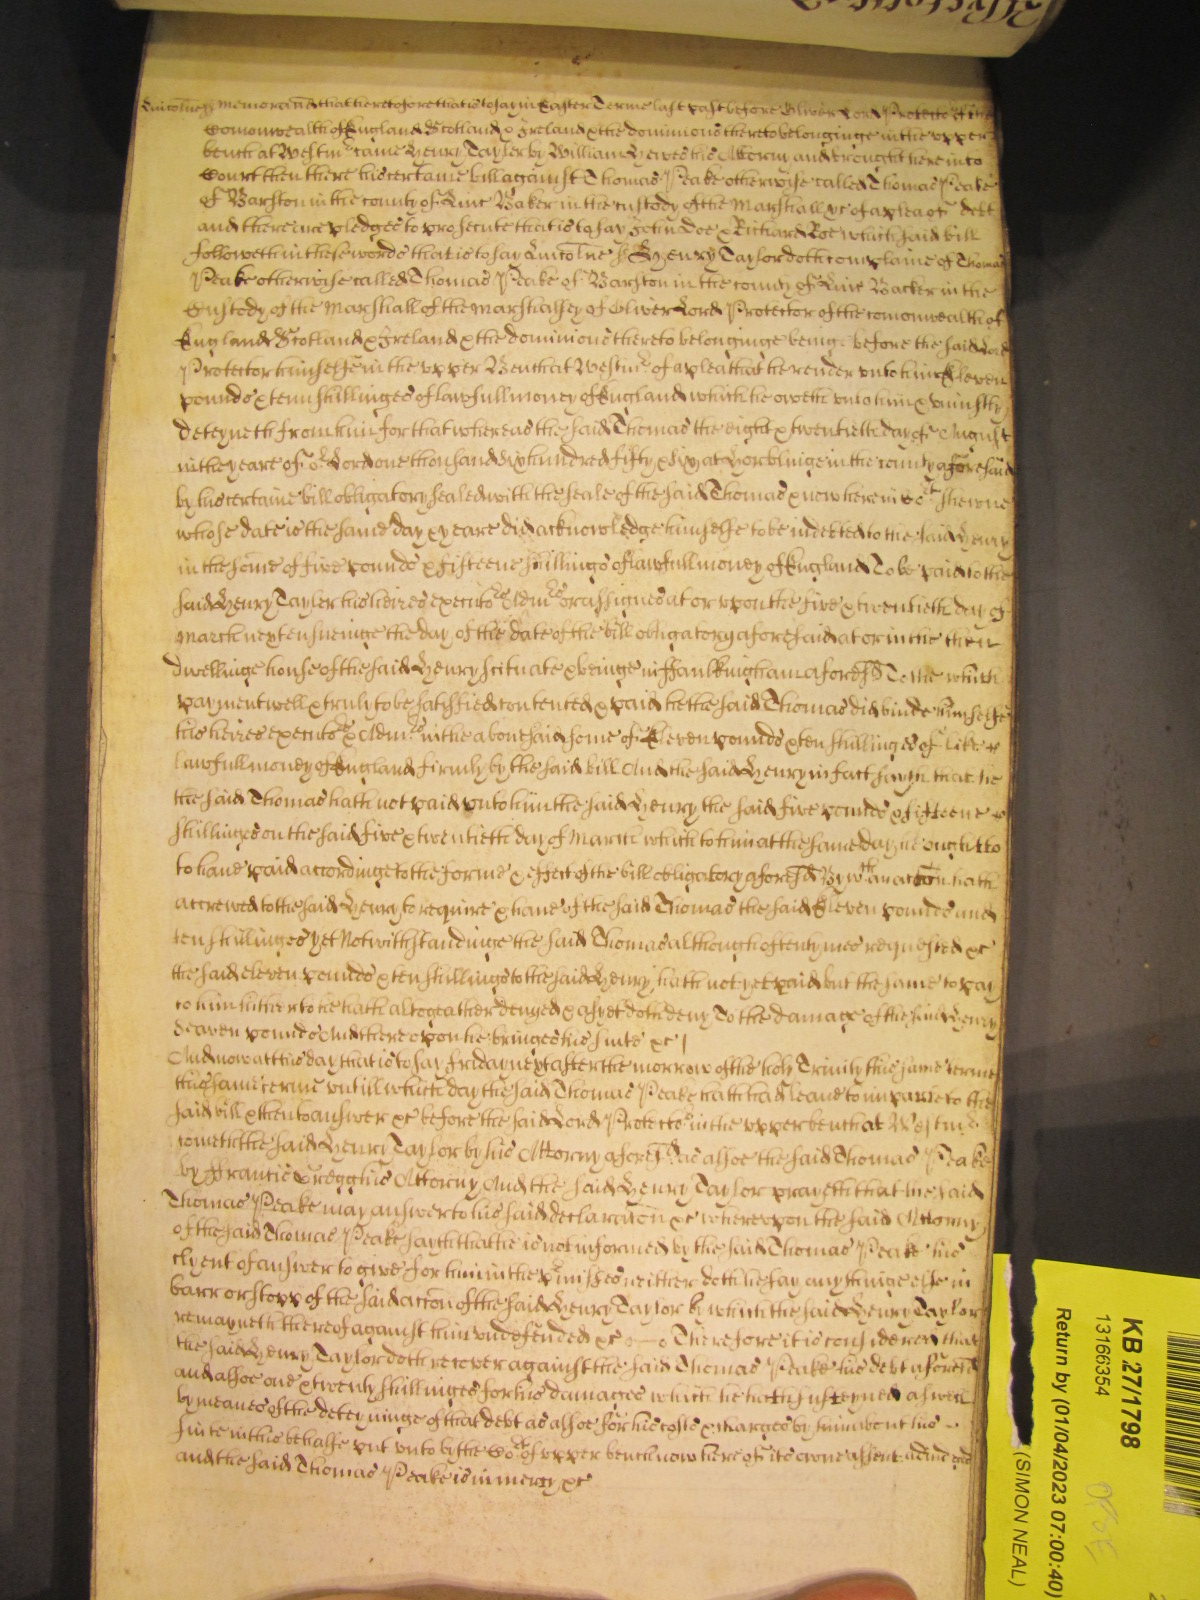 Lincolne ss Memorand that heretofore that is to say in Easter Terme last past before Oliver Lord Protector of the
Comonwealth of England Scotland & Ireland & the dominions thereto belonginge in the upper
bench at Westmr came Henry Taylor by William Hewes his Attorny and brought here into
Court then there his certaine bill against Thomas Peake otherwise called Thomas Peake
of Barston in the county of Linc Baker in the custody of the Marshall &c of a plea of debt
and there ine pledges to prosecute that is to say John Doe & Richard Roe which said bill
followeth in these words that is to say Lincolne ss Henry Taylor doth complaine of Thomas
Peake otherwise called Thomas Peake of Barston in the county of Linc Backer in the
Custody of the Marshall of the Marshallsey of Oliver Lord Protector of the comonwealth of
England Scotland & Ireland & the dominions thereto belonginge being before the said Lord
Protector himselfe in the upper Bench at Westmr of a plea that he render unto him Eleven
pounds & tenn shillinges of lawfull money of England which he oweth unto him & uniustly
deteyneth from him for that whereas the said Thomas the eight & twentieth day of August
in the yeare of or Lord one thousand six hundred fifty & six at Horblinge in the county aforesaid
by his certaine bill obligatory sealed with the seale of the said Thomas & now here in Cort shewne
whose date is the same day & yeare did acknowledge himselfe to be indebted to the said Henry
in the some of five pounds & fifteene shillings of lawfull money of England To be paid to the
said Henry Taylor his heires executrs Admrs or assignes at or upon the five & twentieth day of
March next ensueinge the day of the date of the bill obligatory aforesaid at or in the then
dwellinge house of the said Henry scituate & beinge in ffaulkingham aforesd To the which
payment well & truly to be satisfied contented & paid he the said Thomas did binde himselfe
his heires executrs & Admrs in the abovesaid some of Eleven pounds & ten shillinges of like
lawfull money of England firmly by the said bill And the said Henry in fact sayth that he
the said Thomas hath not paid unto him the said Henry the said five pounds & fifteene
shillinges on the said five & twentieth day of March which to him at the same day he ought to
to have paid accordinge to the forme & effect of the bill obligatory aforesd By wch an accon hath
accrewed to the said Henry to require & have of the said Thomas the said Eleven pounds and
ten shillinges yet Notwithstandinge the said Thomas although oftentymes requested &c
the said eleven pounds & ten shillings to the said Henry hath not yet paid but the same to pay
to him hitherto he hath altogeather denyed & as yet doth deny To the damage of the said Henry
pounds And thereupon he bringes his suite &c
And now at this day that is to say Friday next after the morrow of the holy Trinity this same terme
this same terme untill which day the said Thomas Peake hath had leave to imparle to the
said bill & then to answer &c before the said Lord Protector in the upper bench at Westmr
cometh the said Henry Taylor by his Attorny aforesd As alsoe the said Thomas Peake
by ffrancis Gregg his Attorny And the said Henry Taylor prayeth that the said
Thomas Peake may answer to his said declaracon &c whereupon the said Attorny
of the said Thomas Peake sayth that he is not informed by the said Thomas Peake his
clyent of answer to give for him in the pmisses neither doth he say any thinge else in
barr or stopp of the said accon of the said Henry Taylor by which the said Henry Taylor
remayneth thereof against him undefended &c Therefore it is considered that
the said Henry Taylor doth recover against the said Thomas Peake his debt aforesd
and alsoe one & twenty shillinges for his damages which he hath susteyned aswell
by meanes of the deteyninge of that debt as alsoe for his costs & charges by him about his
suite in this behalfe put unto by the Cort of upper bench now here of its owne assent adiudged
and the said Thomas Peake is in mercy &c
KB 27/1798
13166354
Return by (01/04/2023 07:00:40)
(SIMON NEAL)